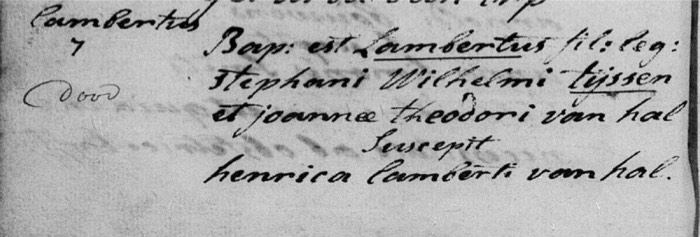 Lambertus
7
Dood
Bap: est Lambertus fil: leg:
Stephani Wilhelmi tijssen
et joannæ theodori van hal
Suscepit
henrica Lamberti van hal.